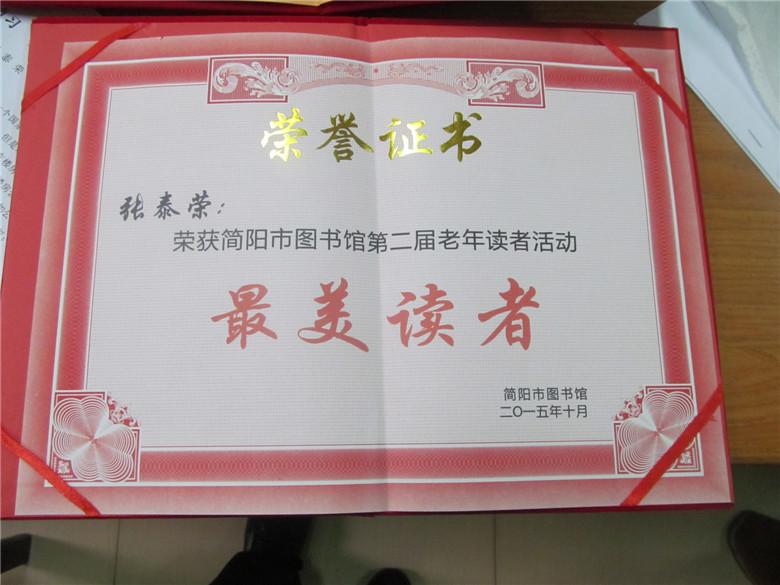 荣誉证书
张泰荣：
荣获简阳市图书馆第二届老年读者活动
最美读者
简阳市图书馆
二〇一五年十月